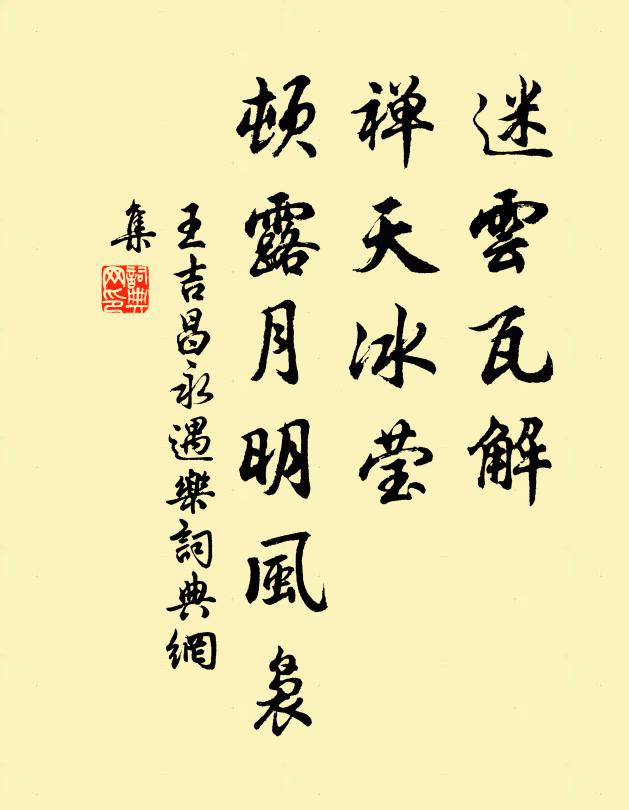 迷雲瓦解
禅天冰莹
頓露月明風袅
王吉昌永遇樂詞典網
集
詞典网印